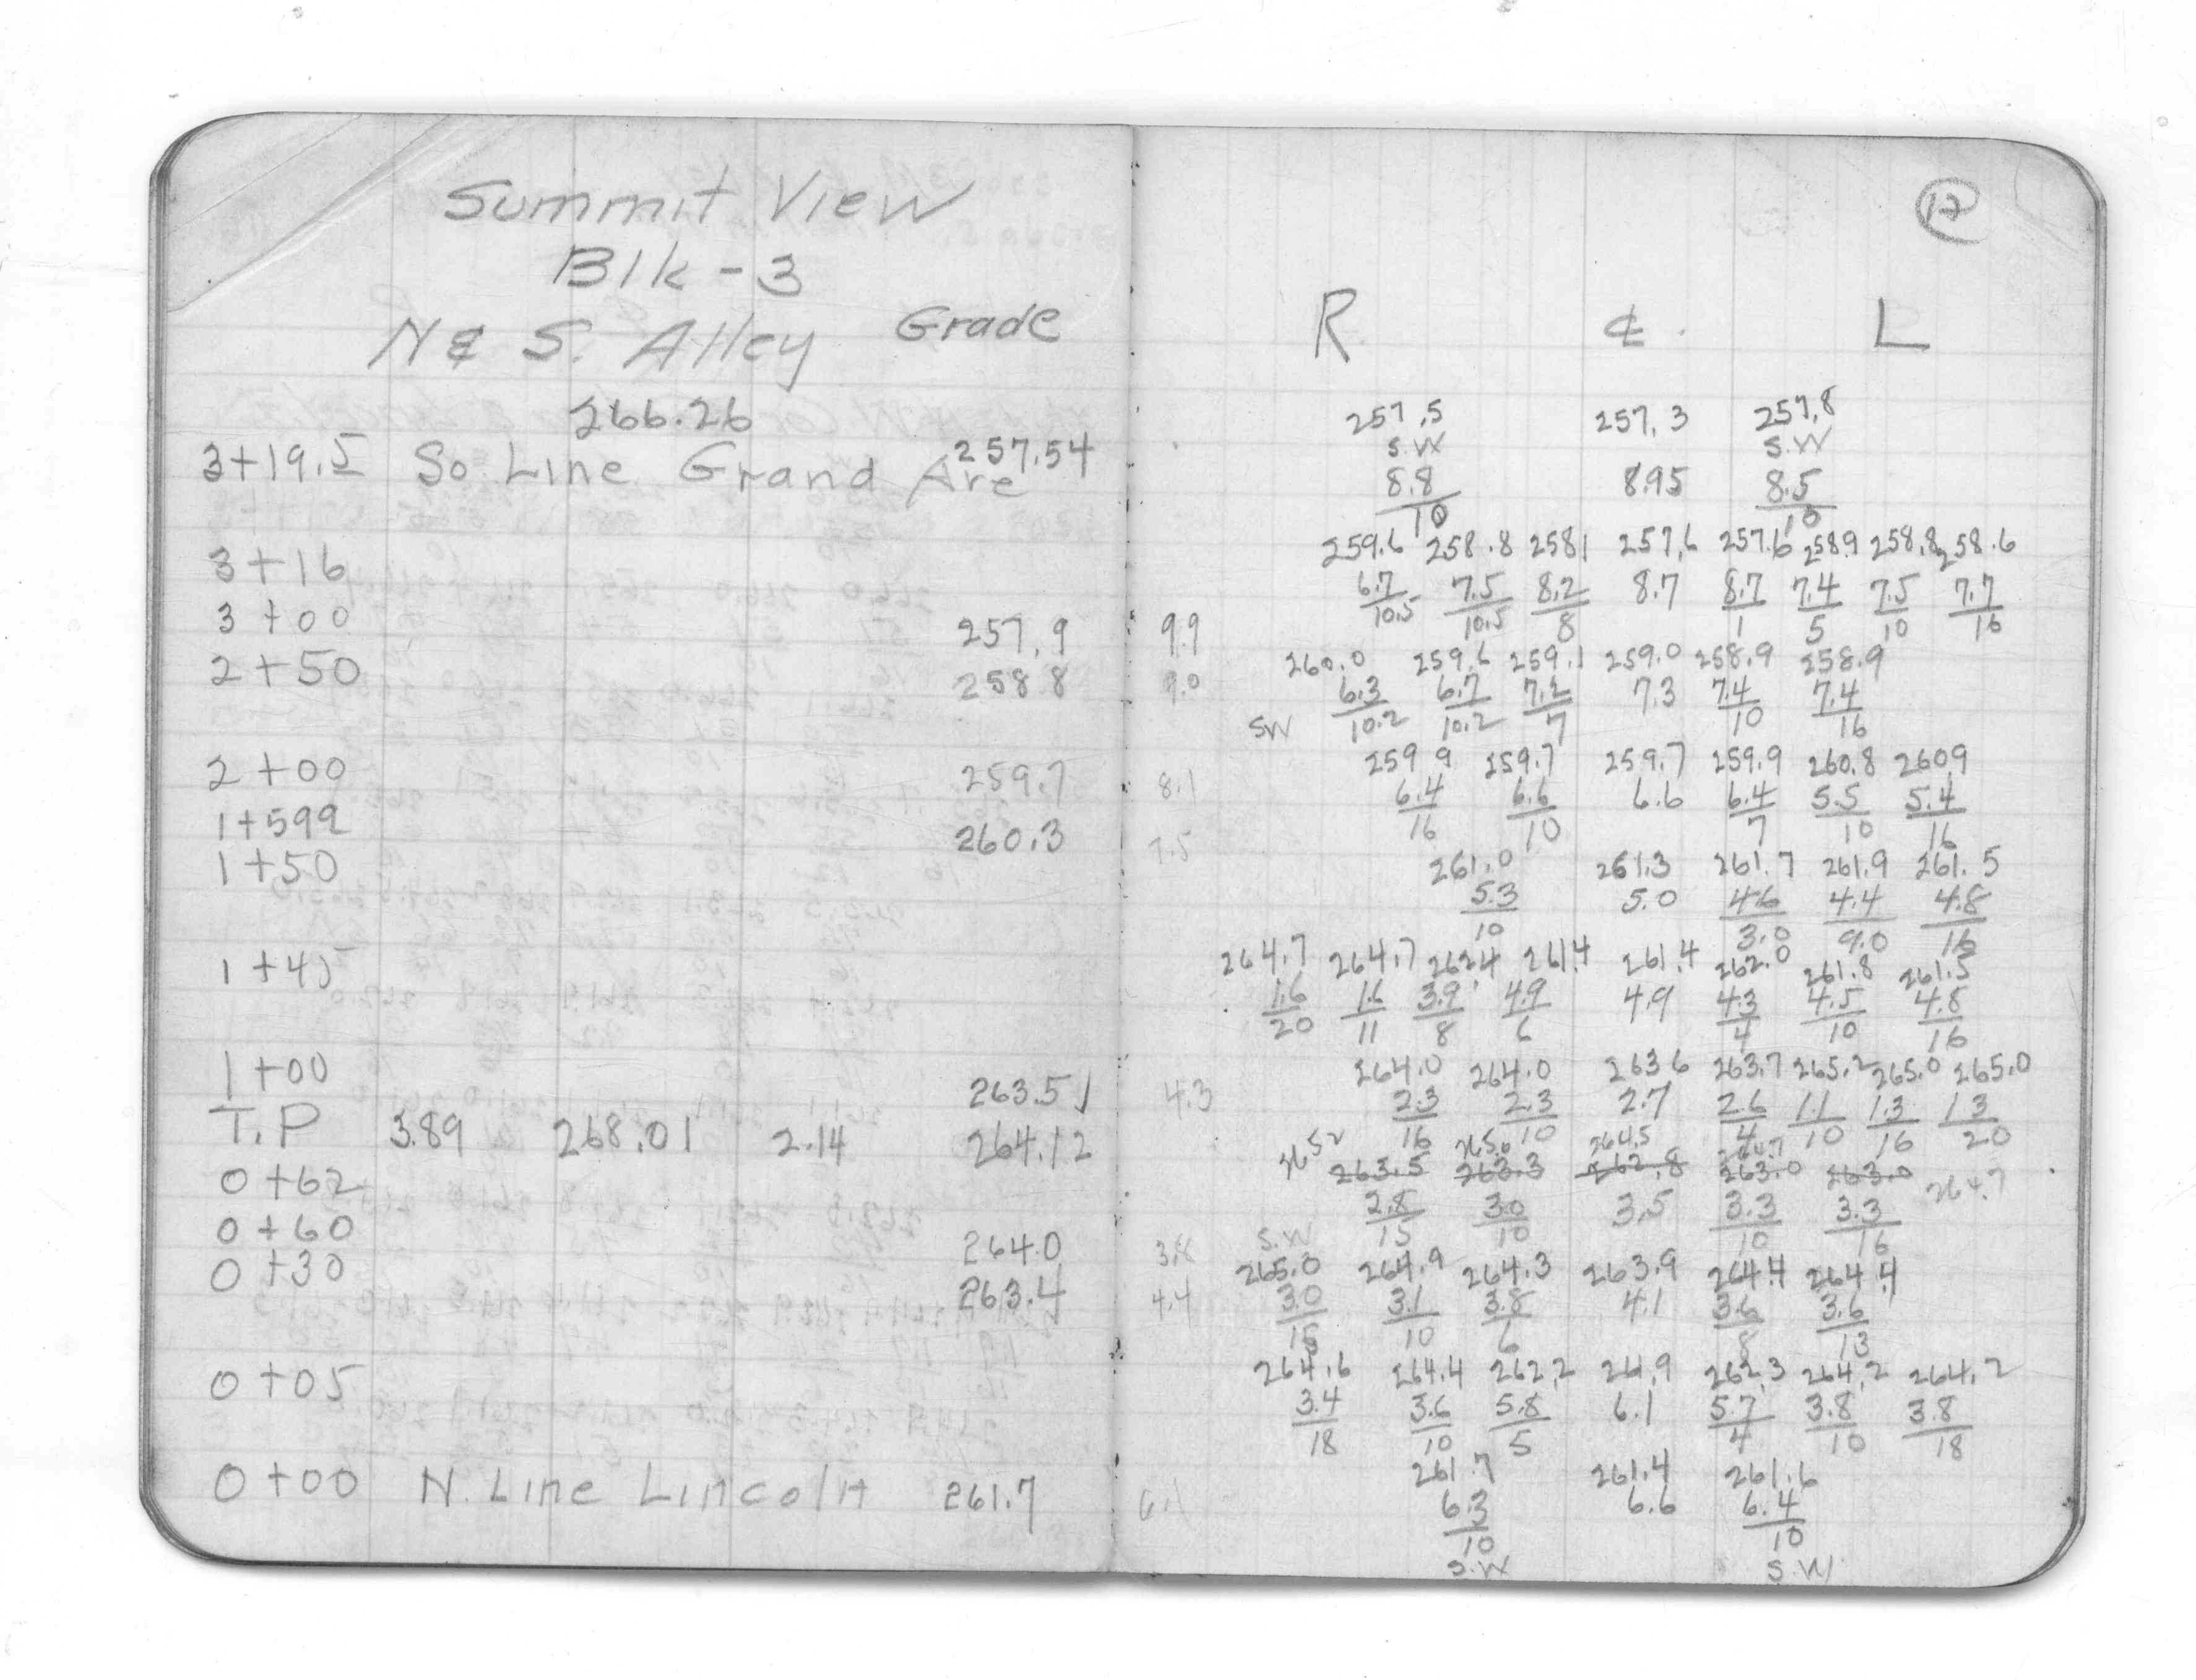 Summit View
Blk - 3
N & S. Alley Grade
266.26
3+19.5 So. Line Grand Ave 257.54
3+16
3+00 257.9 9.9
2+50 258.8 9.0
2+00 259.7 8.1
1+599
1+50 260.3 7.5
1+45
1+00 263.51 4.3
T.P 3.89 268.01 2.14 264.12
0+62
0+60 264.0 3.8
0+30 263.4 4.4
0+05
0+00 N. Line Lincoln 261.7 6.1
12
R ₵. L
257.5 257.3 257.8
S.W S.W
8.8 8.95 8.5
10 10
259.6 258.8 258.1 257.6 257.6 258.9 258.8 258.6
6.7 7.5 8.2 8.7 8.7 7.4 7.5 7.7
10.5 10.5 8 1 5 10 16
260.0 259.6 259.1 259.0 258.9 258.9
6.3 6.7 7.2 7.3 7.4 7.4
SW 10.2 10.2 7 10 16
259.9 259.7 259.7 259.9 260.8 260.9
6.4 6.6 6.6 6.4 5.5 5.4
16 10 7 10 16
261.0 261.3 261.7 261.9 261.5
5.3 5.0 4.6 4.4 4.8
10 3.0 9.0 16
264.7 264.7 262.4 261.4 261.4 262.0 261.8 261.5
1.6 1.6 3.9 4.9 4.9 4.3 4.5 4.8
20 11 8 6 4 10 16
264.0 264.0 263.6 263.7 265.2 265.0 265.0
2.3 2.3 2.7 2.6 1.1 1.3 1.3
16 10 4 10 16 20
265.2 265.0 264.5 264.7
263.5 263.3 262.8 263.0 263.0 264.7
2.8 3.0 3.5 3.3 3.3
S.W 15 10 10 16
265.0 264.9 264.3 263.9 264.4 264.4
3.0 3.1 3.8 4.1 3.6 3.6
15 10 6 8 13
264.6 264.4 262.2 261.9 262.3 264.2 264.2
3.4 3.6 5.8 6.1 5.7 3.8 3.8
18 10 5 4 10 18
261.7 261.4 261.6
6.3 6.6 6.4
10 10
S.W S.W